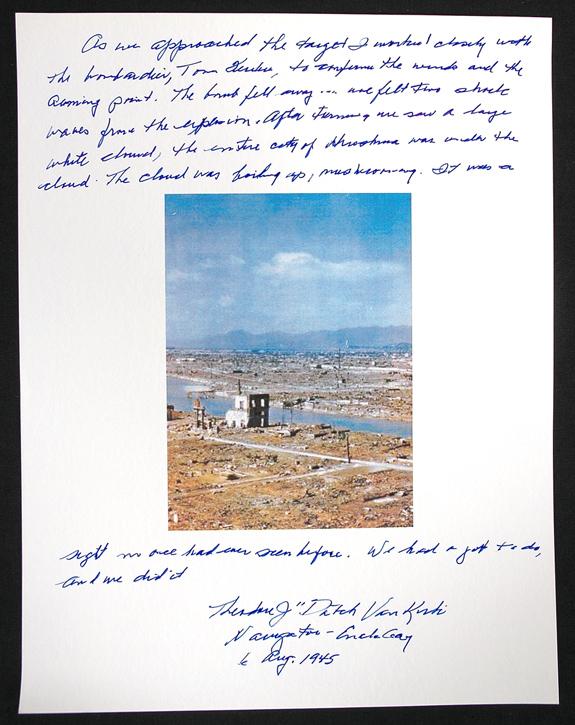 As we approached the target I worked closely with
the bombardier, Tom Ferebee, to confirm the winds and the
aiming point. The bomb fell away... we felt two shock
waves from the explosion. After turning we saw a large
white cloud, the entire city of Hiroshima was under the
cloud. The cloud was boiling up, mushrooming. It was a
sight no one had ever seen before. We had a job to do,
and we did it
Theodore J "Dutch Van Kirk
Navigator - Enola Gay
6 Aug. 1945